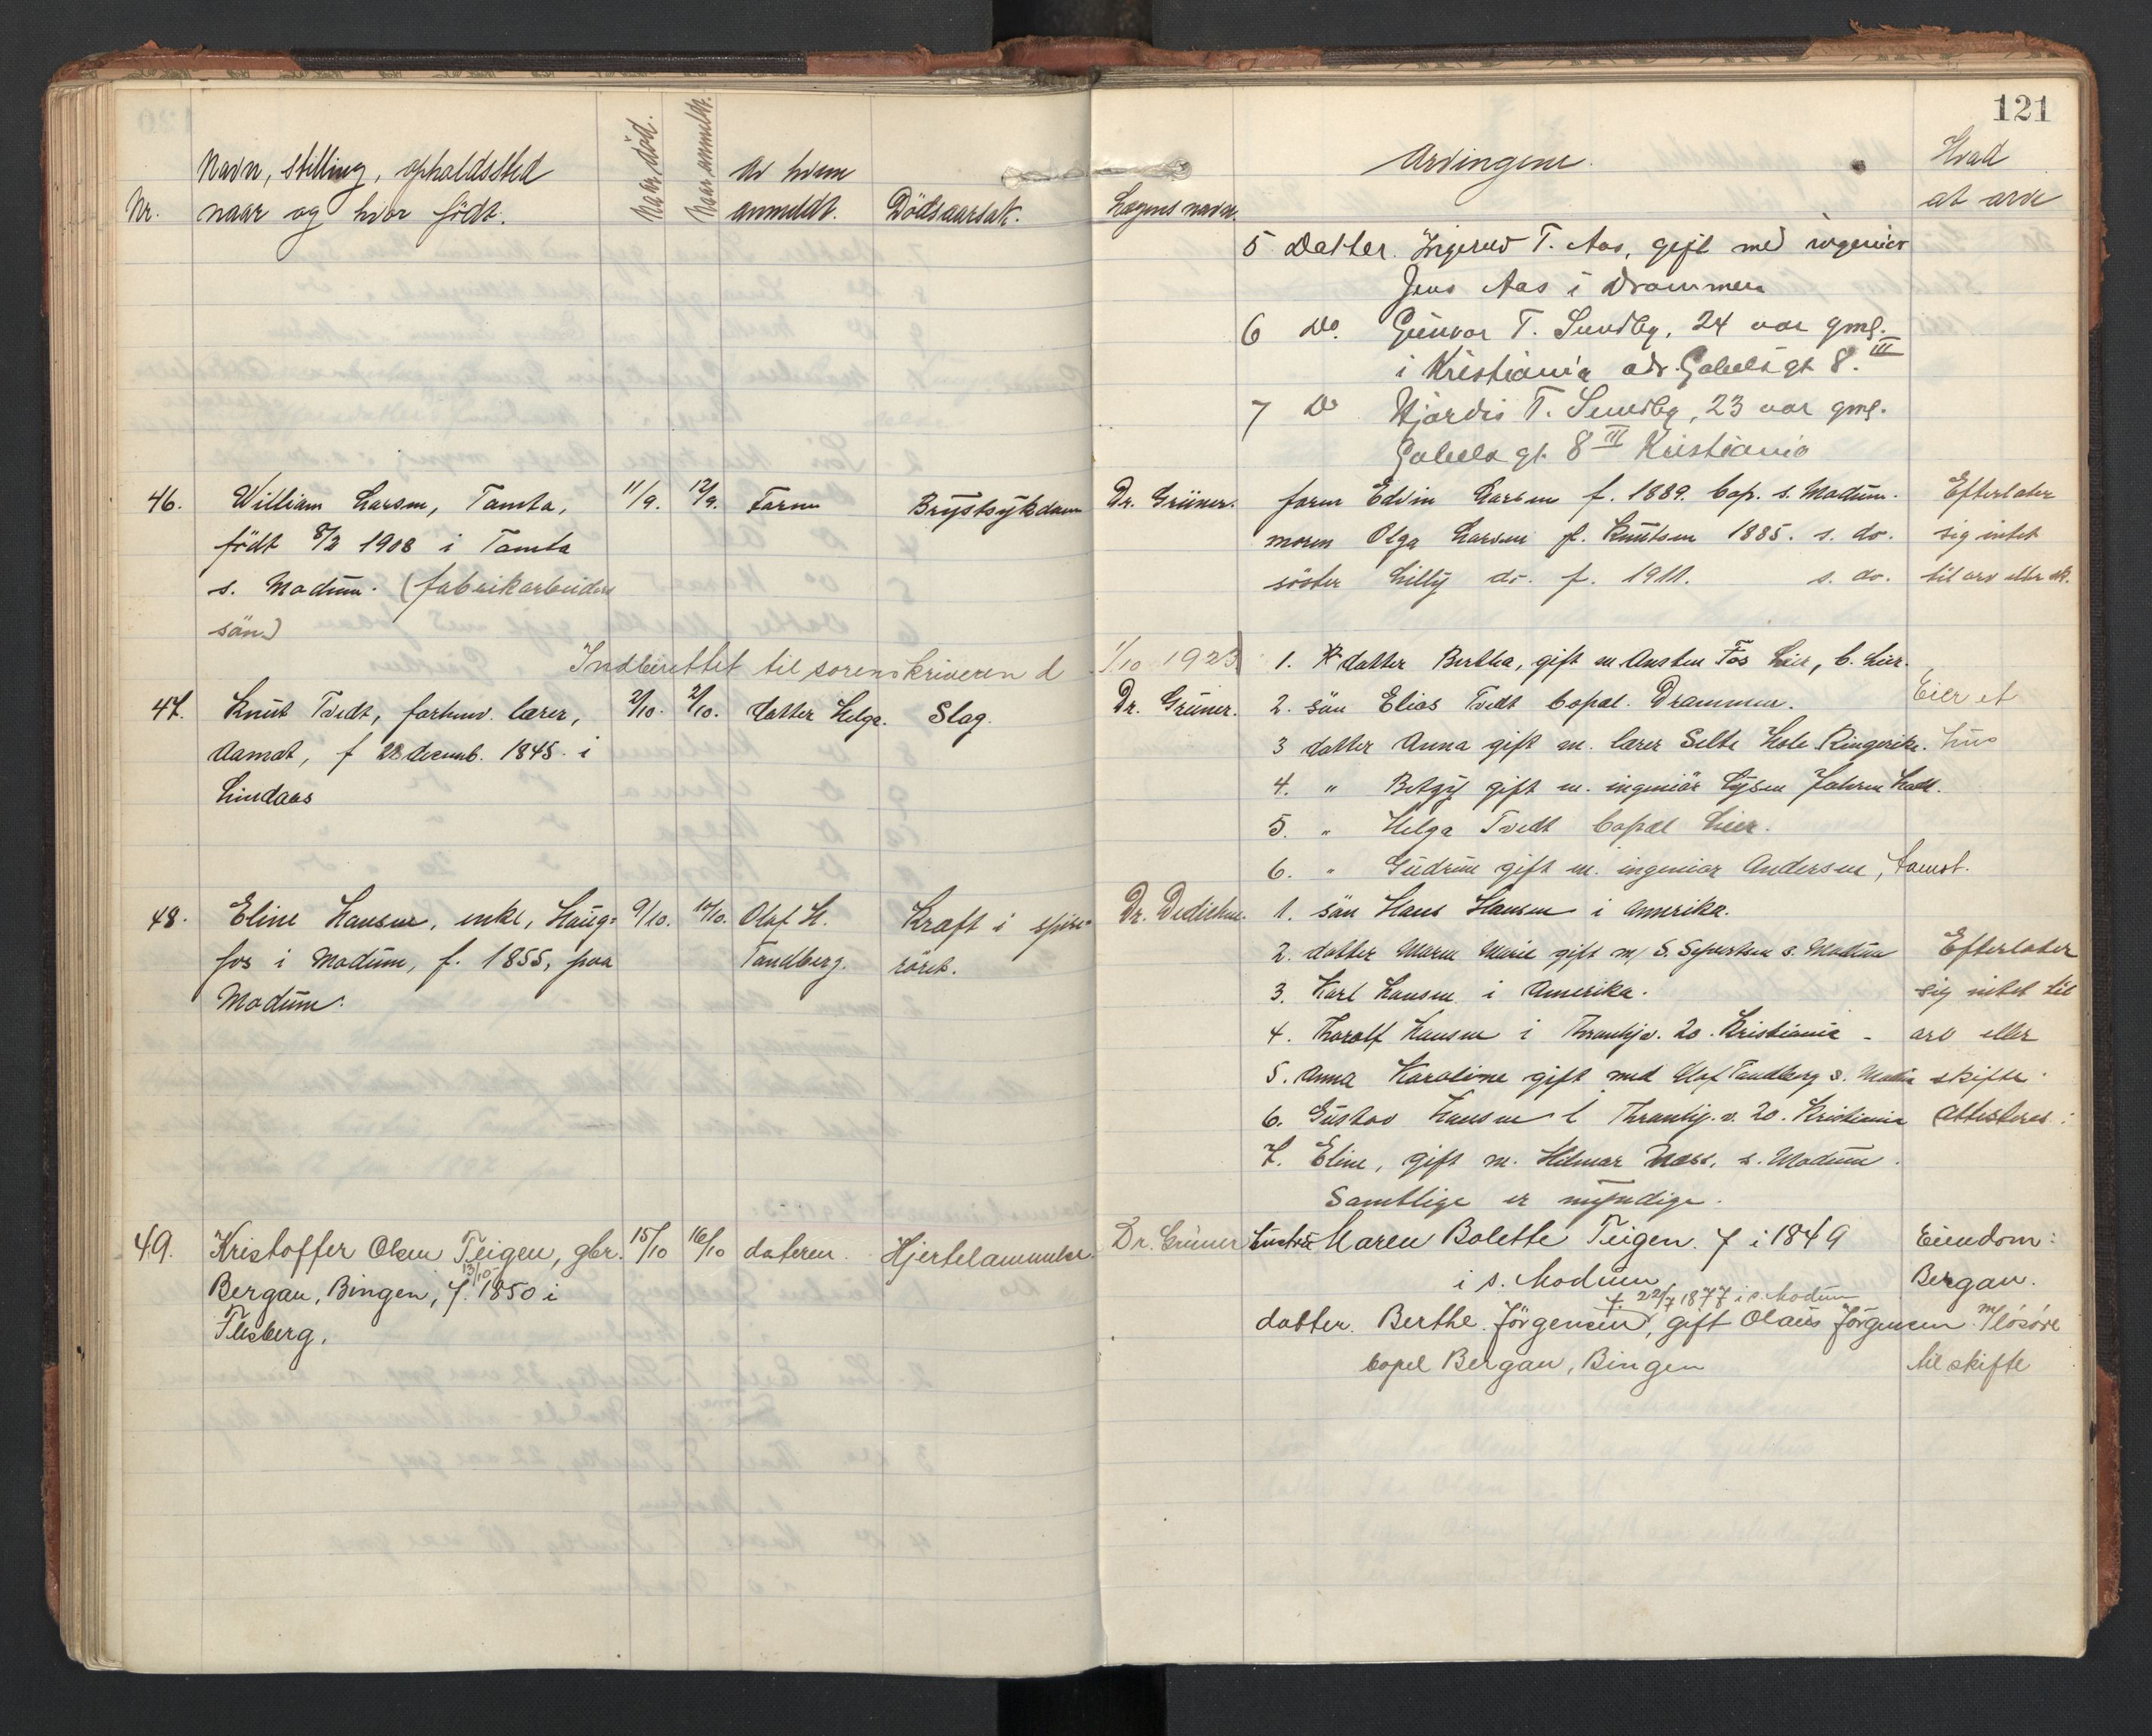 121
Navn, stilling, opholdssted
Nr. naar og hvor födt.
Naar död.
Naar anmeldt.
Av hvem
anmeldt.
Dödsaarsak.
Lægens navn.
Arvingene.
Hvad
at arve
5 Datter. Ingerid T. Aas, gift med ingeniör
Jens Aas i Drammen
6 Do. Gunvor T. Sundby, 24 aar gml.
i Kristiania adr. Gabelsgt 8. III
7 Do Hjördis T. Sundby, 23 aar gml.
Gabels gt. 8 III Kristiania
46. William Larsen, Tamta, 11/9. 12/9. Faren Brystsykdom Dr. Grüner.
födt 8/2 1908 i Tamta
s. Modum. (fabrikarbeiders
sön)
faren Edvin Larsen f. 1889. bop. s. Modum.
moren Olga Larsen f. Knutsen 1885. s. do.
söster Lilly do. f. 1911. s. do.
Efterlater
sig intet
til arv eller sk.
Indberettet til sorenskriveren d 1/10 1923
47. Knut Tvedt, forhenv. lærer, 2/10. 2/10. datter Helga. Slag. Dr. Grüner.
Aamot, f 28 decemb. 1845. i
Lindaas
1. datter Bertha, gift m. Austen Fos Lier, b. Lier.
2. sön Elias Tvedt bopæl. Drammen.
3 datter Anna gift m. lærer Selte Hole Ringerike.
4. " Betzy gift m. ingeniör Lysen
5. " Helga Tvedt bopæl Lier.
6. " Gudrun gift m. ingeniör Andersen, Aamot.
Eier et
hus
48. Eline Hansen, enke, Haug- 9/10. 10/10. Olaf H. Kraft i spise- Dr. Dedichen.
fos i Modum, f. 1855, paa Tandberg. röret.
Modum.
1. sön Hans Hansen i Amerika.
2. datter Maren Marie gift m/ S. Syvertsen s. Modum
3. Karl Hansen i Amerika.
4. Thoralf Hansen i Thranhjv. 20. Kristiania -
5. Anna Karoline gift med Olaf Tandberg s. Modum
6. Gustav Hansen i Thranhj. v. 20. Kristiania
7. Eline, gift m. Hilmar Næss, s. Modum.
Samtlige er myndige.
Efterlater
sig intet til
arv eller
skifte.
Attesteres:
49. Kristoffer Olsen Teigen, gbr. 15/10 16/10 dateren. Hjertelammelse Dr. Grüner
Bergan, Bingen, f. 13/10 1850 i
Flesberg.
hustru Maren Bolette Teigen. f i 1849
i s. Modum
f. 22/7 1877 i s. Modum
datter. Berthe Jörgensen, gift Olaus Jörgensen
bopel Bergan, Bingen
Eiendom:
Bergan.
m/ lösöre
til skifte